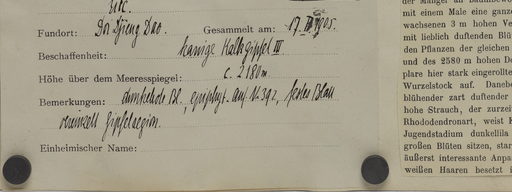 etc.
Fundort: Doi Djieng Dao. Gesammelt am: 17. 05.
Beschaffenheit: Kalkgipfel III.
Höhe über dem Meeresspiegel: c. 2180 m
Bemerkungen: epiphyt. auf № 392, Blatt
Gipfelregion.
Einheimischer Name:
mit einem Male eine ganze
wachsenen 3 m hohen Ve
mit lieblich duftenden Blü
den Pflanzen der gleichen
und des 2580 m hohen Do
plare hier stark eingerollte
Wurzelstock auf. Danebe
blühender zart duftender
hohe Strauch, der zurzei
Rhododendronart, weist K
Jugendstadium dunkellila
großen Blüten sitzen, star
äußerst interessante Anpa
weißen Haaren besetzt i